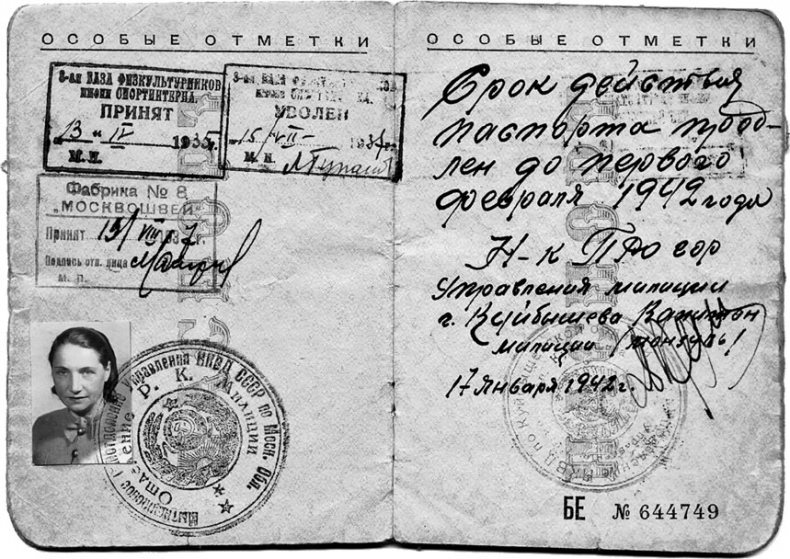 ОСОБЫЕ ОТМЕТКИ
3-ая БАЗА ФИЗКУЛЬТУРНИКОВ
имени СПОРТИНТЕРНА
ПРИНЯТ
13 " IV 1935 г.
М. П.
3-ая БАЗА
УВОЛЕН
15/VII- 193
М. П.
Фабрика № 8
„МОСКВОШВЕЙ"
Принят 15/VIII 1937 г.
Подпись отв. лица
М. П.
Управления НКВД СССР по Моск. Обл.
Отделение Р. К. Милиции
ОСОБЫЕ ОТМЕТКИ
Срок действия
паспорта прод-
лен до первого
февраля 1942 года
Н-к ПРО гор
Управления милиции
г. Куйбышева Капитан
милиции
17 Января 1942 г.
БЕ № 644749